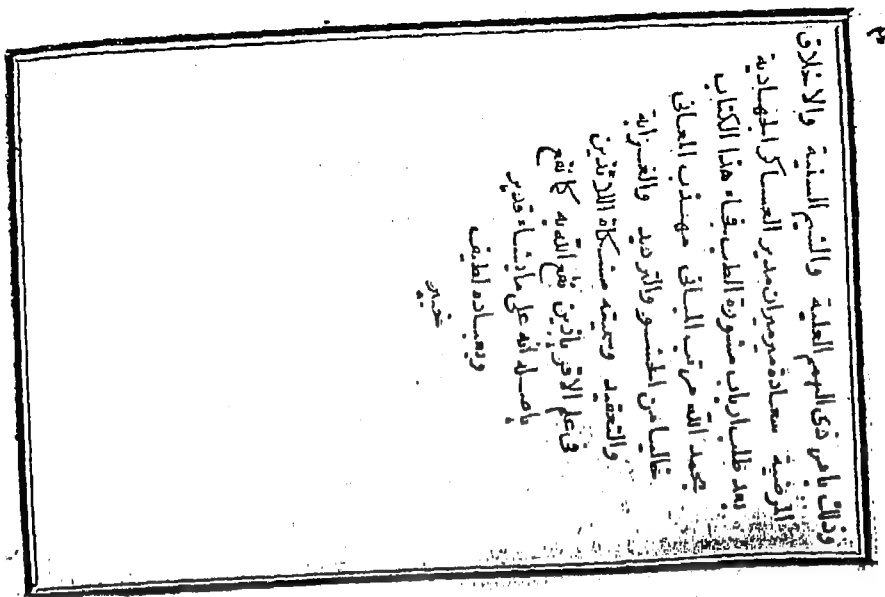 ٣
وذلك بامر ذى الهمم العلية والشيم السنية والاخلاق
المرضية سعادة ميرميران مدير العساكر الجهادية
بعد طلب ارباب مشورة الطب فجاء هذا الكتاب
بحمد الله مرتب المبانى مهذب المعانى
خاليا من الحشو والترديد والغرابة
والتعقيد وسميته مشكاة اللائذين
فى علم الاقرباذين نفع الله به كما نفع
باصله انه على ما يشاء قدير
وبعباده لطيف
خبير